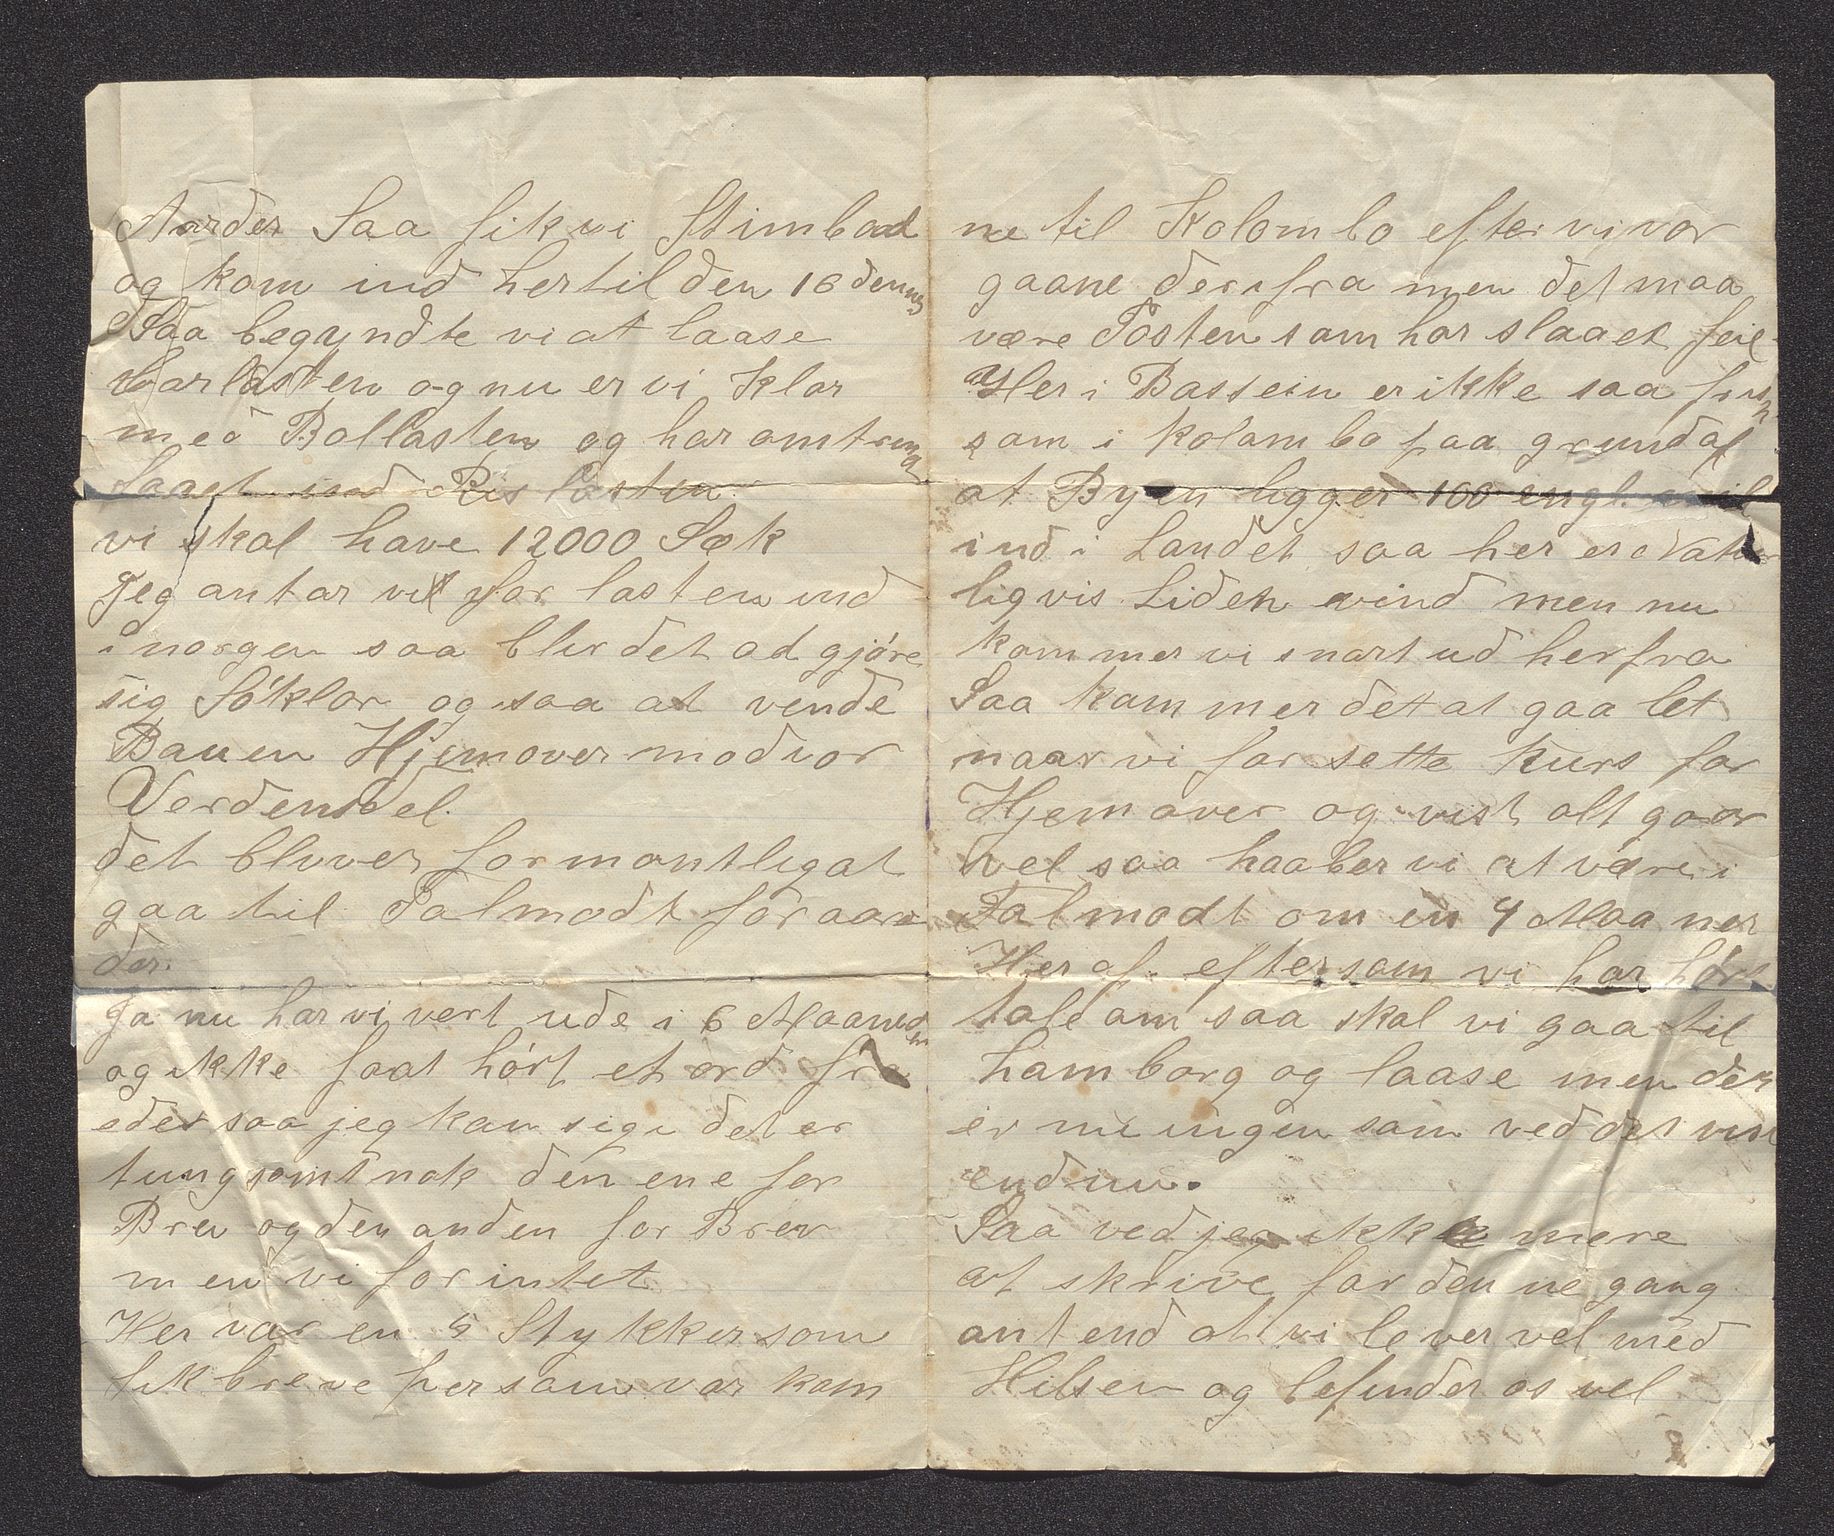 Aarder Saa fik vi Stimbaad
og kom ind hertil den 16 dennes
Saa begyndte vi at laase
barlasten og nu er vi klar
med Ballasten og har omtrent
faaet ind Rislasten
vi skal have 12000 Sæk
Jeg antar vi får lasten ind
i morgen saa blir det ad gjøre
sig Søklar og saa at vende
Bauen Hjemover mod vor
Verdensdel.
det bliver formantligat
gaa til Falmodt før aar
der.
Ja nu har vi vert ude i 6 Maaneder
og ikke faat hørt et ord fra
eder saa jeg kan sige det er
tungsomt nok den ene før
Brev og den anden før Brev
men vi får intet
Her var en 5 Stykker som
fik breve her som var kom
ne til Kolombo efter vi var
gaane derifra men det maa
være Posten som har slaaet feil
Her i Bassein er ikke saa frisk
som i Kolambo paa grund af
at Byen ligger 100 engl. mil
ind i Landet saa her er Natur
ligvis Liden vind men nu
kommer vi snart ud herfra
Saa kommer det at gaa let
naar vi får sette kurs for
Hjemover og vist alt gaar
vel saa haaber vi at være i
Falmodt om en 4 Maaner
Heraf. eftersom vi har hørt
tale om saa skal vi gaa til
Hamborg og laase men der
er nu ingen som ved det vist
endnu.
Saa ved jeg ikke mere
at skrive for denne gang
ant end at vi lever vel med
Hilsen og befinder os vel